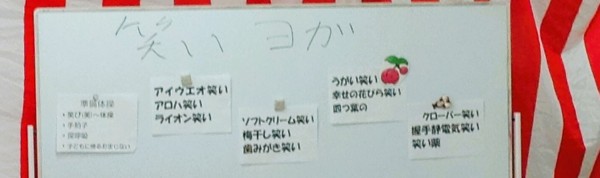 笑いヨガ
準備体操
・手拍子
・深呼吸
・子どもに帰るおまじない
アイウエオ笑い
アロハ笑い
ライオン笑い
ソフトクリーム笑い
梅干し笑い
歯みがき笑い
うがい笑い
幸せの花びら笑い
四つ葉の
クローバー笑い
握手静電気笑い
笑い薬